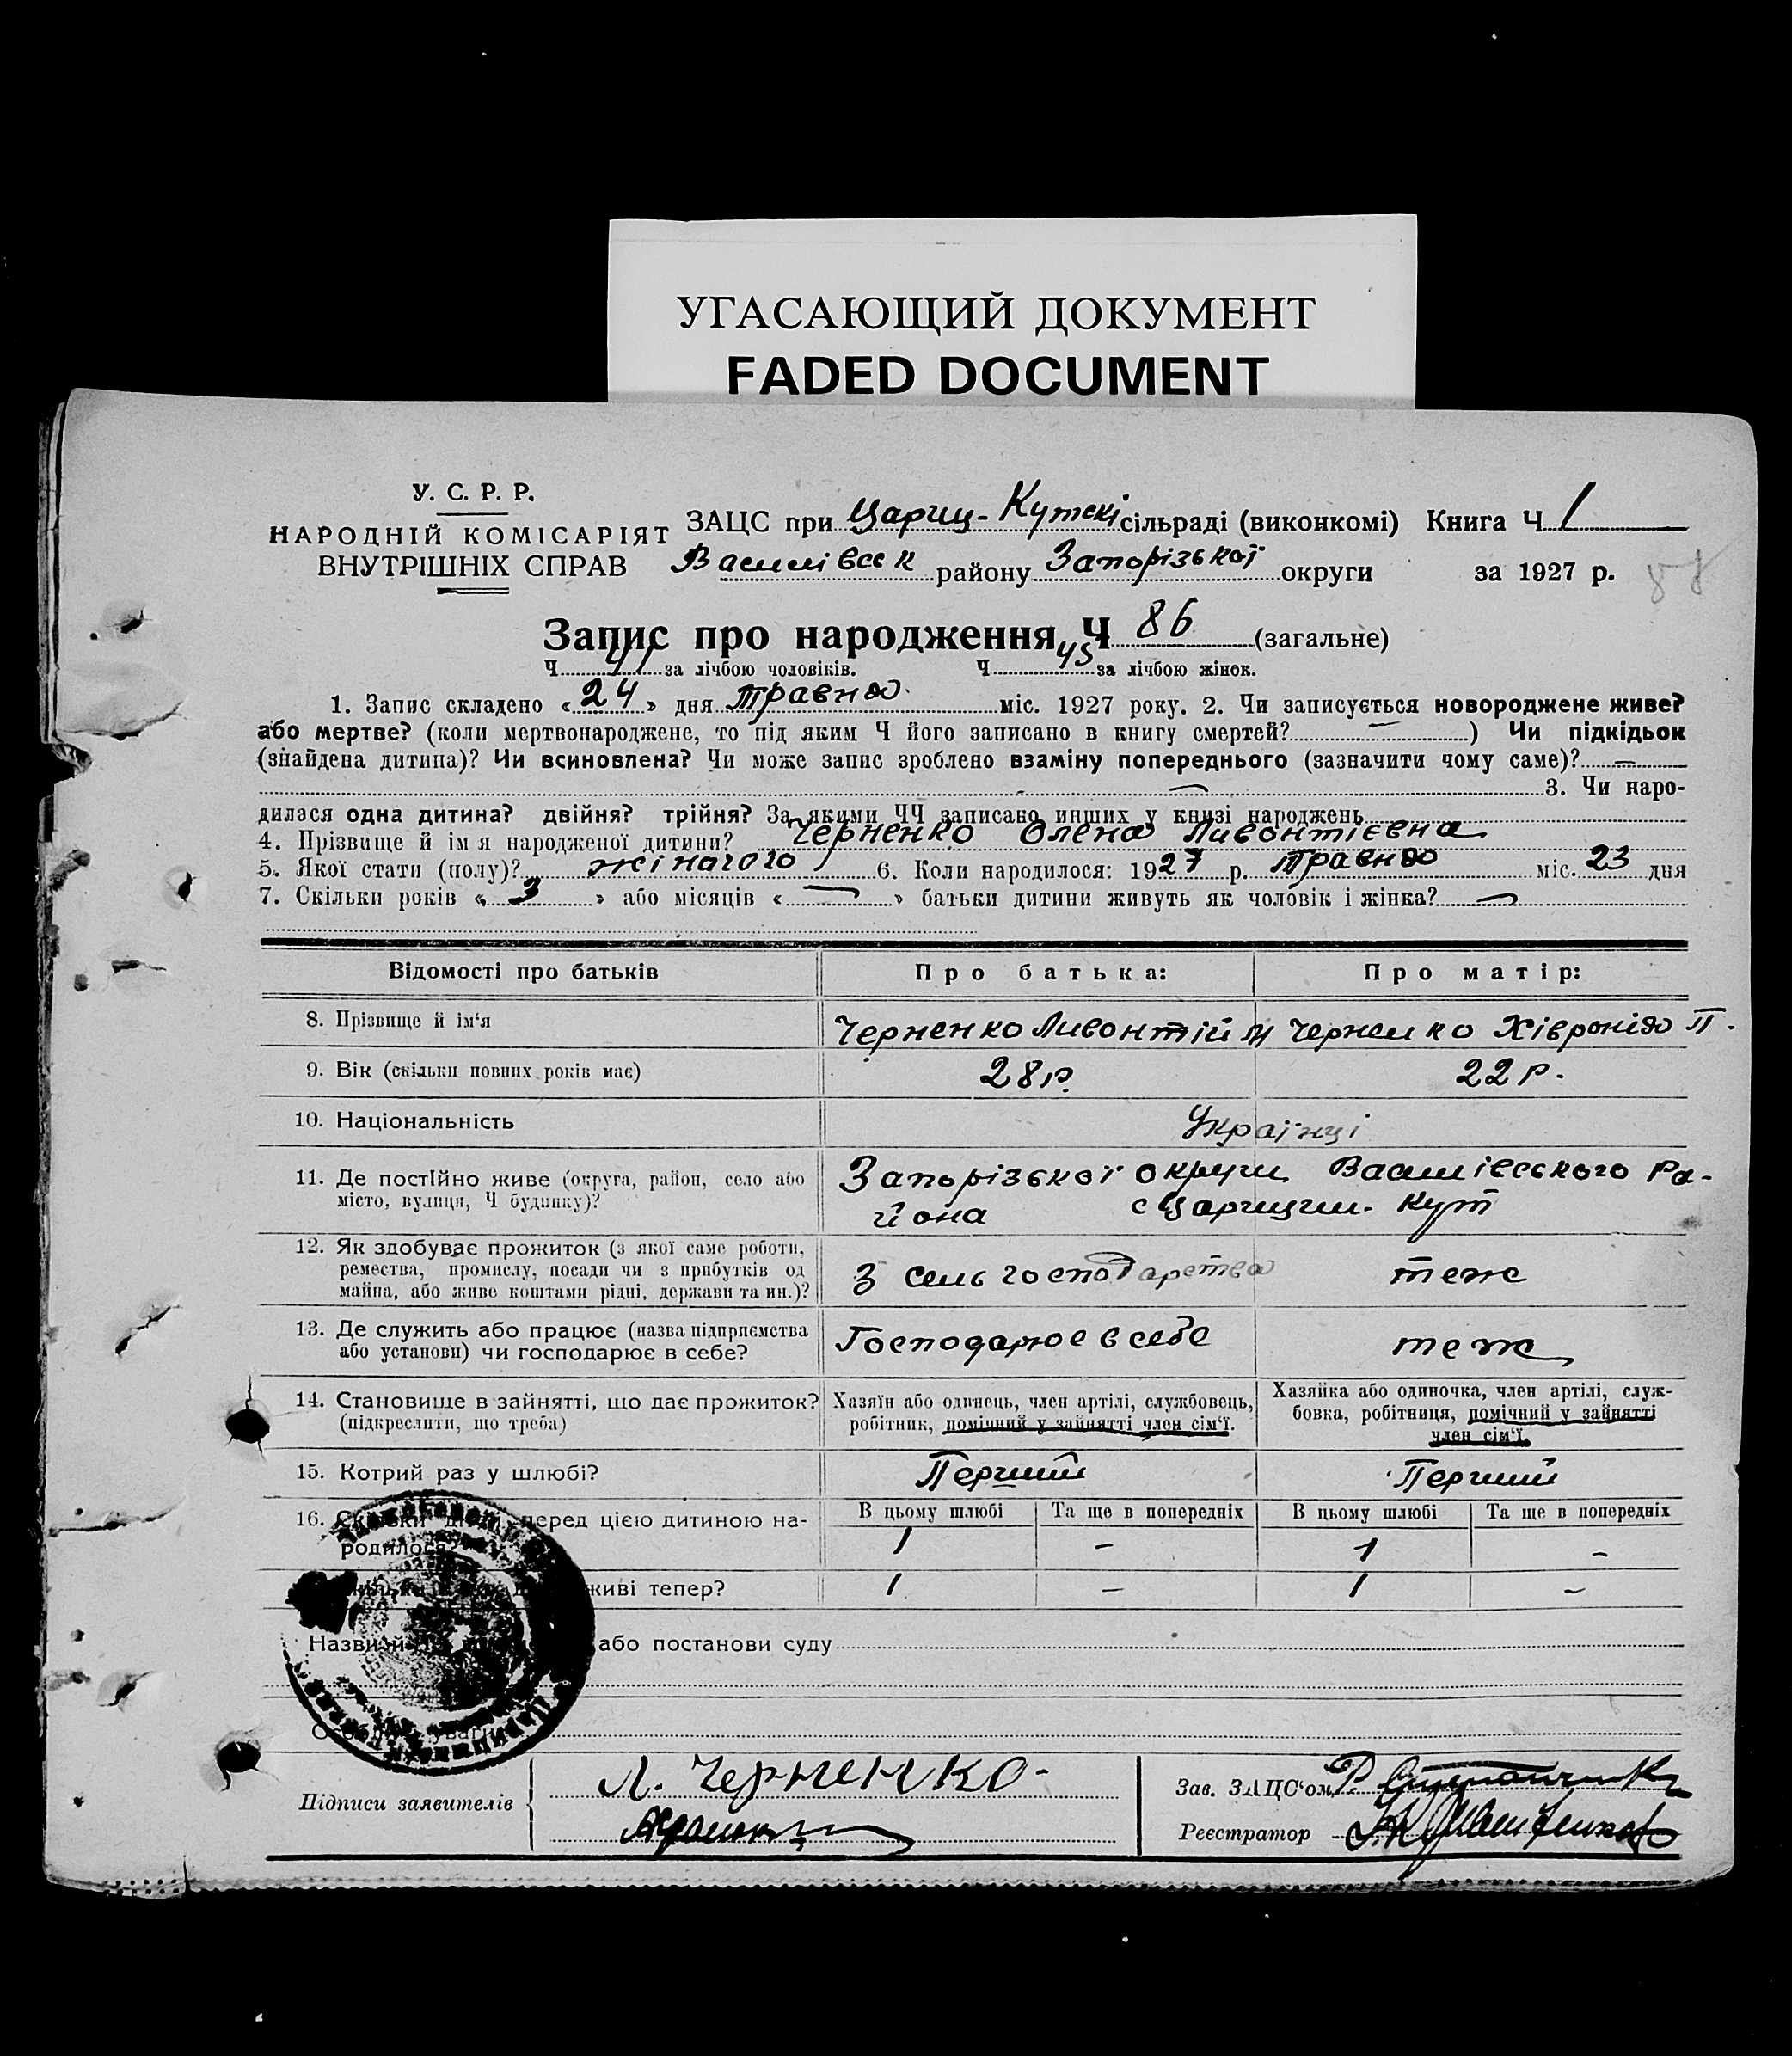 УГАСАЮЩИЙ ДОКУМЕНТ
FADED DOCUMENT
У. С. Р. Р.
НАРОДНІЙ КОМІСАРІЯТ
ВНУТРІШНІХ СПРАВ
ЗАЦС при Цариц-Кутскі сільраді (виконкомі) Книга Ч 1
Василівськ району Запорізької округи за 1927 р.
Запис про народження Ч 86 (загальне)
Ч 41 за лічбою чоловіків. Ч 45 за лічбою жінок.
1. Запис складено «24» дня травня міс. 1927 року. 2. Чи записується новороджене живе?
або мертве? (коли мертвонароджене, то під яким Ч його записано в книгу смертей? —) Чи підкідьок
(знайдена дитина)? Чи всиновлена? Чи може запис зроблено взаміну попереднього (зазначити чому саме)? —
— 3. Чи наро-
дилася одна дитина? двійня? трійня? За якими ЧЧ записано инших у книзі народжень
4. Прізвище й ім я народженої дитини? Черненко Олена Ливонтієвна
5. Якої стати (полу)? жіночого 6. Коли народилося: 1927 р. травня міс. 23 дня
7. Скільки років «3» або місяців «—» батьки дитини живуть як чоловік і жінка? —
Відомості про батьків Про батька: Про матір:
8. Прізвище й ім'я Черненко Ливонтій М Черненко Хівронія П.
9. Вік (скільки повних років має) 28 р. 22 р.
10. Національність Українці
11. Де постійно живе (округа, район, село або Запорізької округи Василівського Ра-
місто, вулиця, Ч будинку)? йона с Царицин-Кут
12. Як здобуває прожиток (з якої саме роботи,
ремества, промислу, посади чи з прибутків од З сель господарства теж
майна, або живе коштами рідні, держави та ин.)?
13. Де служить або працює (назва підприємства Господарює в себе теж
або установи) чи господарює в себе?
14. Становище в зайнятті, що дає прожиток? Хазяїн або одинець, член артілі, службовець, Хазяйка або одиночка, член артілі, служ-
(підкреслити, що треба) робітник, помічний у зайнятті член сім'ї. бовка, робітниця, помічний у зайнятті
член сім'ї.
15. Котрий раз у шлюбі? Перший Перший
В цьому шлюбі Та ще в попередніх В цьому шлюбі Та ще в попередніх
16. Скільки дітей перед цією дитиною на-
родилося? 1 — 1 —
живі тепер? 1 — 1 —
Назви й або постанови суду
Особливі уваги
Підписи заявителів Л. Черненко Зав. ЗАЦС'ом
Реєстратор